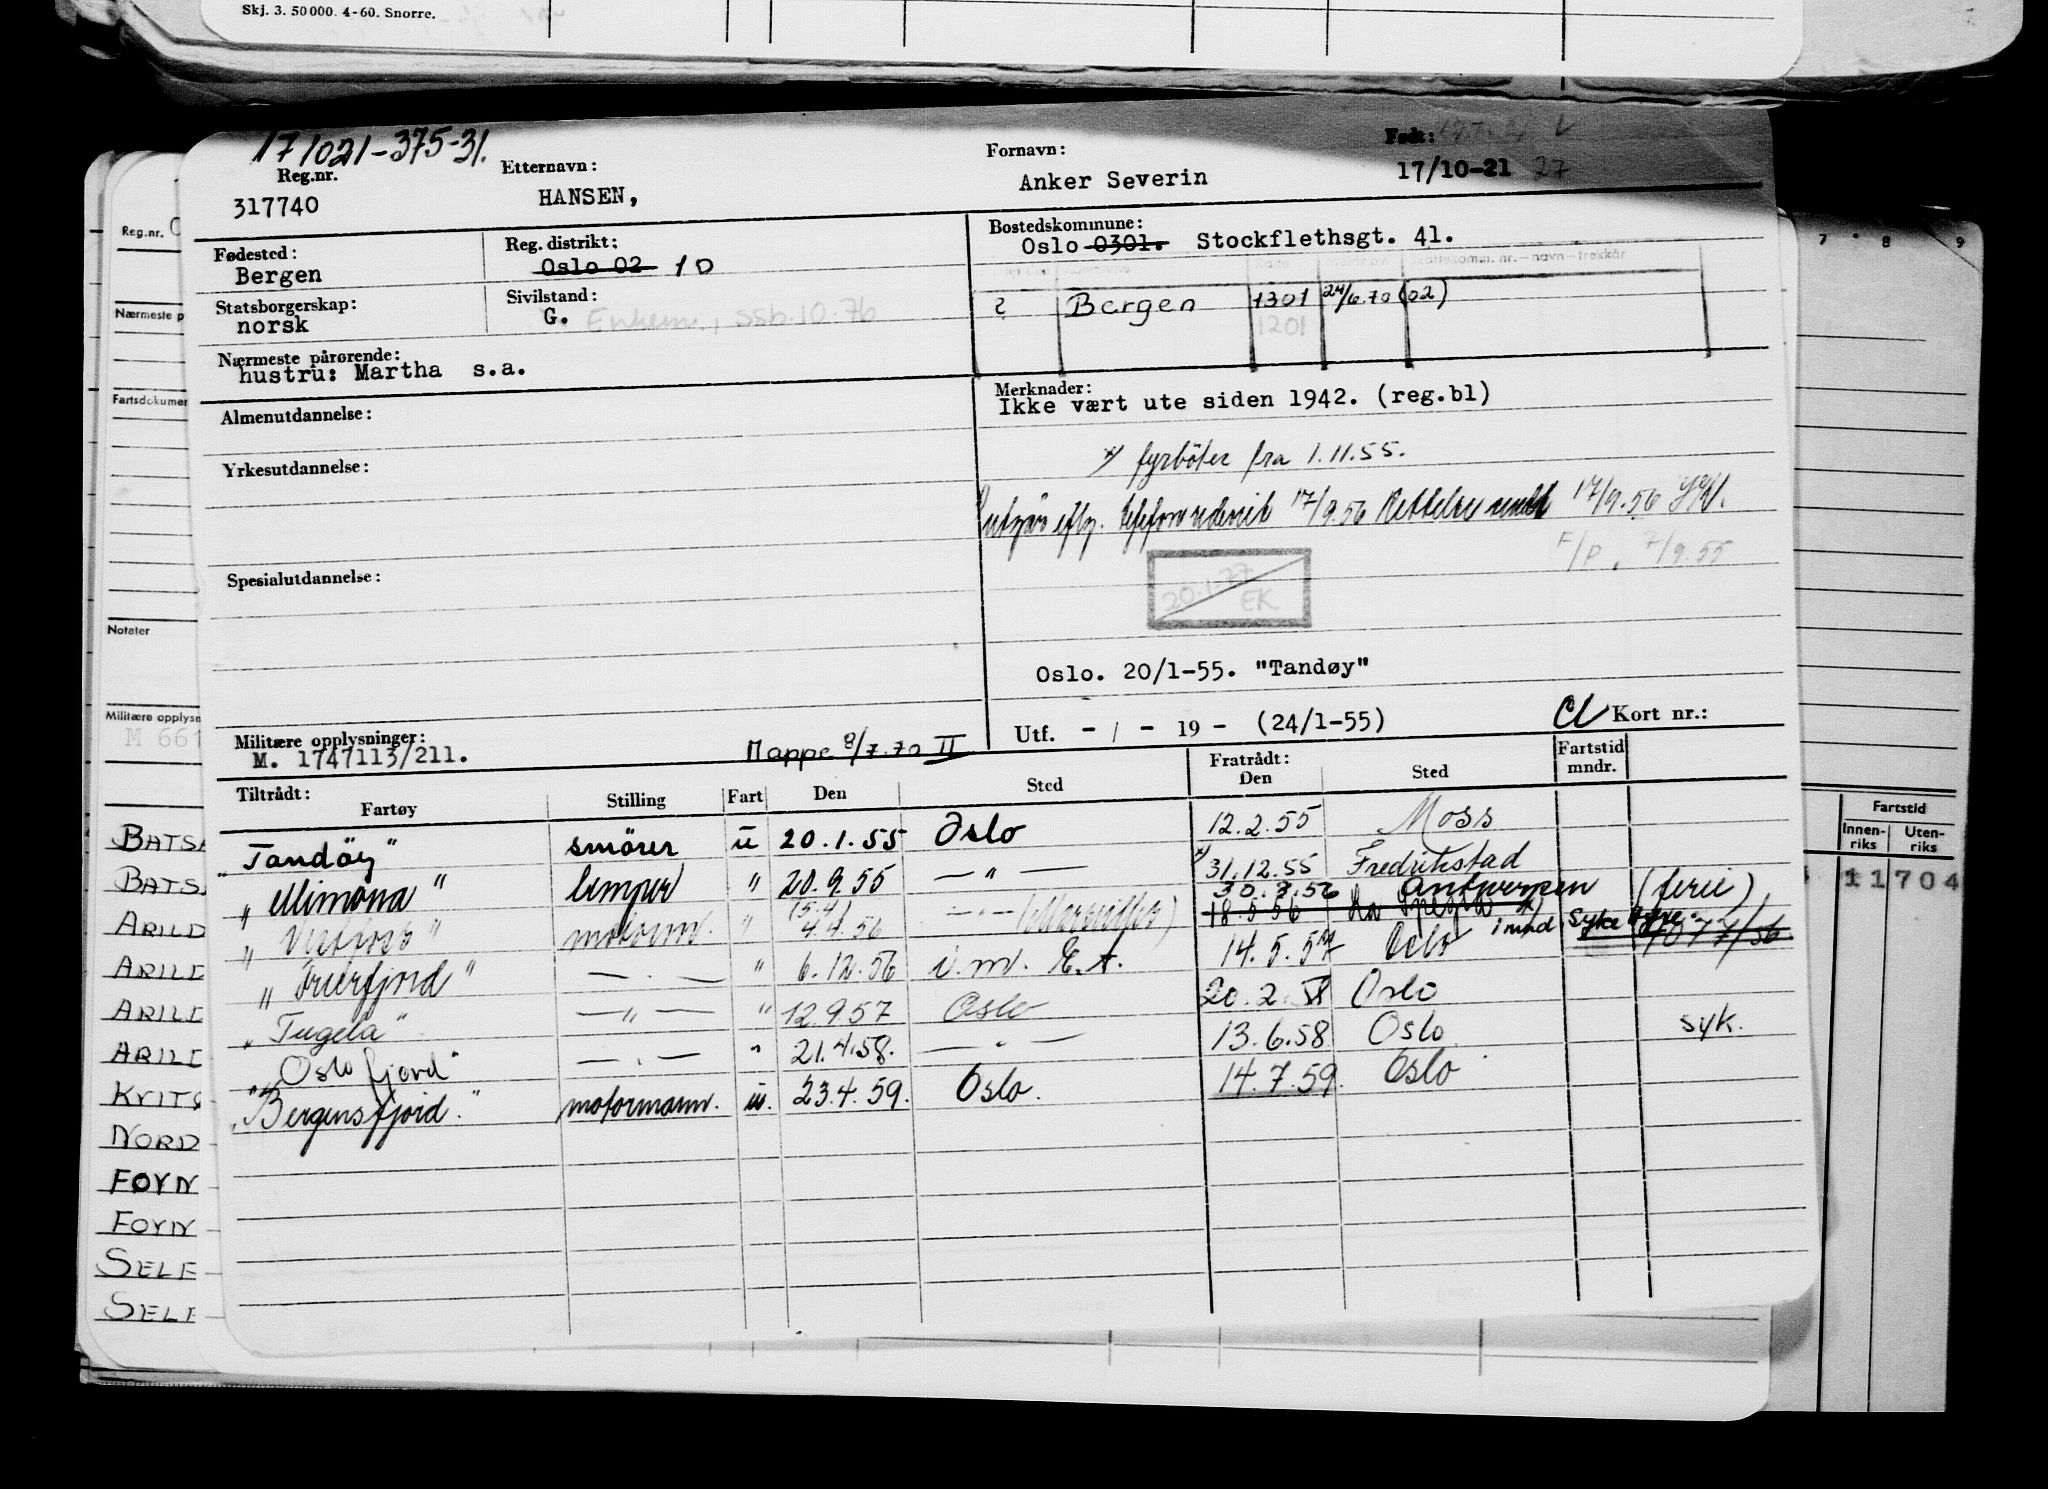 Skj. 3. 50 000. 4-60. Snorre.
171021-375-31.
Reg.nr. Etternavn: Fornavn: Født:
317740 HANSEN, Anker Severin 17/10-21 27
Fødested: Reg. distrikt: Bostedskommune:
Bergen Oslo 02 10 Oslo 0301. Stockflethsgt. 41.
Statsborgerskap: Sivilstand:
norsk G. Enkem., ssb. 10.76
? Bergen 1301 24/6.70 (02)
1201
Nærmeste pårørende:
hustru: Martha s.a.
Merknader:
Ikke vært ute siden 1942. (reg.bl)
Almenutdannelse:
x) fyrböter fra 1.11.55.
Yrkesutdannelse:
17/9.56 17/9.56
F/P. 7/9.55
Spesialutdannelse:
20.1.77
EK
Oslo. 20/1-55. "Tandøy"
Utf. - / - 19 - (24/1-55) Kort nr.:
Militære opplysninger:
M. 1747113/211. Mappe 8/7.70 II
Tiltrådt: Fratrådt: Fartstid
Fartøy Stilling Fart Den Sted Den Sted mndr.
"Tandöy" smörer u 20.1.55 Oslo 12.2.55 Moss
"Mimona" lemper " 20.9.55 — " — x) 31.12.55 Fredrikstad
30.7.56 Antwerpen (ferie)
(5.4)
" " motorm. " 4.4.56 — " — 18.5.56 La Spezia x) 1 mnd. syke hyre
"Frierfjord" — . — " 6.12.56 14.5.57 Oslo
"Tugela" — " — " 12.9.57 Oslo 20.2.58 Oslo
"Oslofjord" — . — " 21.4.58. — " — 13.6.58 Oslo syk.
"Bergensfjord." motormann. u. 23.4.59. Oslo. 14.7.59. Oslo
Reg.nr.
Nærmeste p
Fartsdokumen
Notater
Militære opplysn
M 661
BATS
BATS
ARILD
ARILD
ARILD
ARILD
KVITS
NORD
FOYN
FOYN
SELF
SELF
7 8 9
Fartstid
Innen-riks Uten-riks
11 704